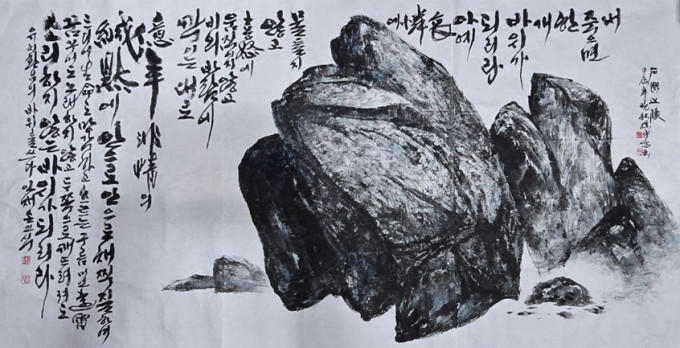 내
죽으면
한
개
바위가
되리라
아예
哀
憐
에
물들지
않고
喜怒에
움직이지 않고
비와 바람에
깎이는 대로
億年 非情의
緘默에 안으로 안으로 채찍질하여
드디어 生命도 망각하고 흐르는 구름 머언 遠雷
꿈꾸어도 노래하지 않고 두 쪽으로 깨뜨려져도
소리하지 않는 바위가 되리라
바위를 쓰다